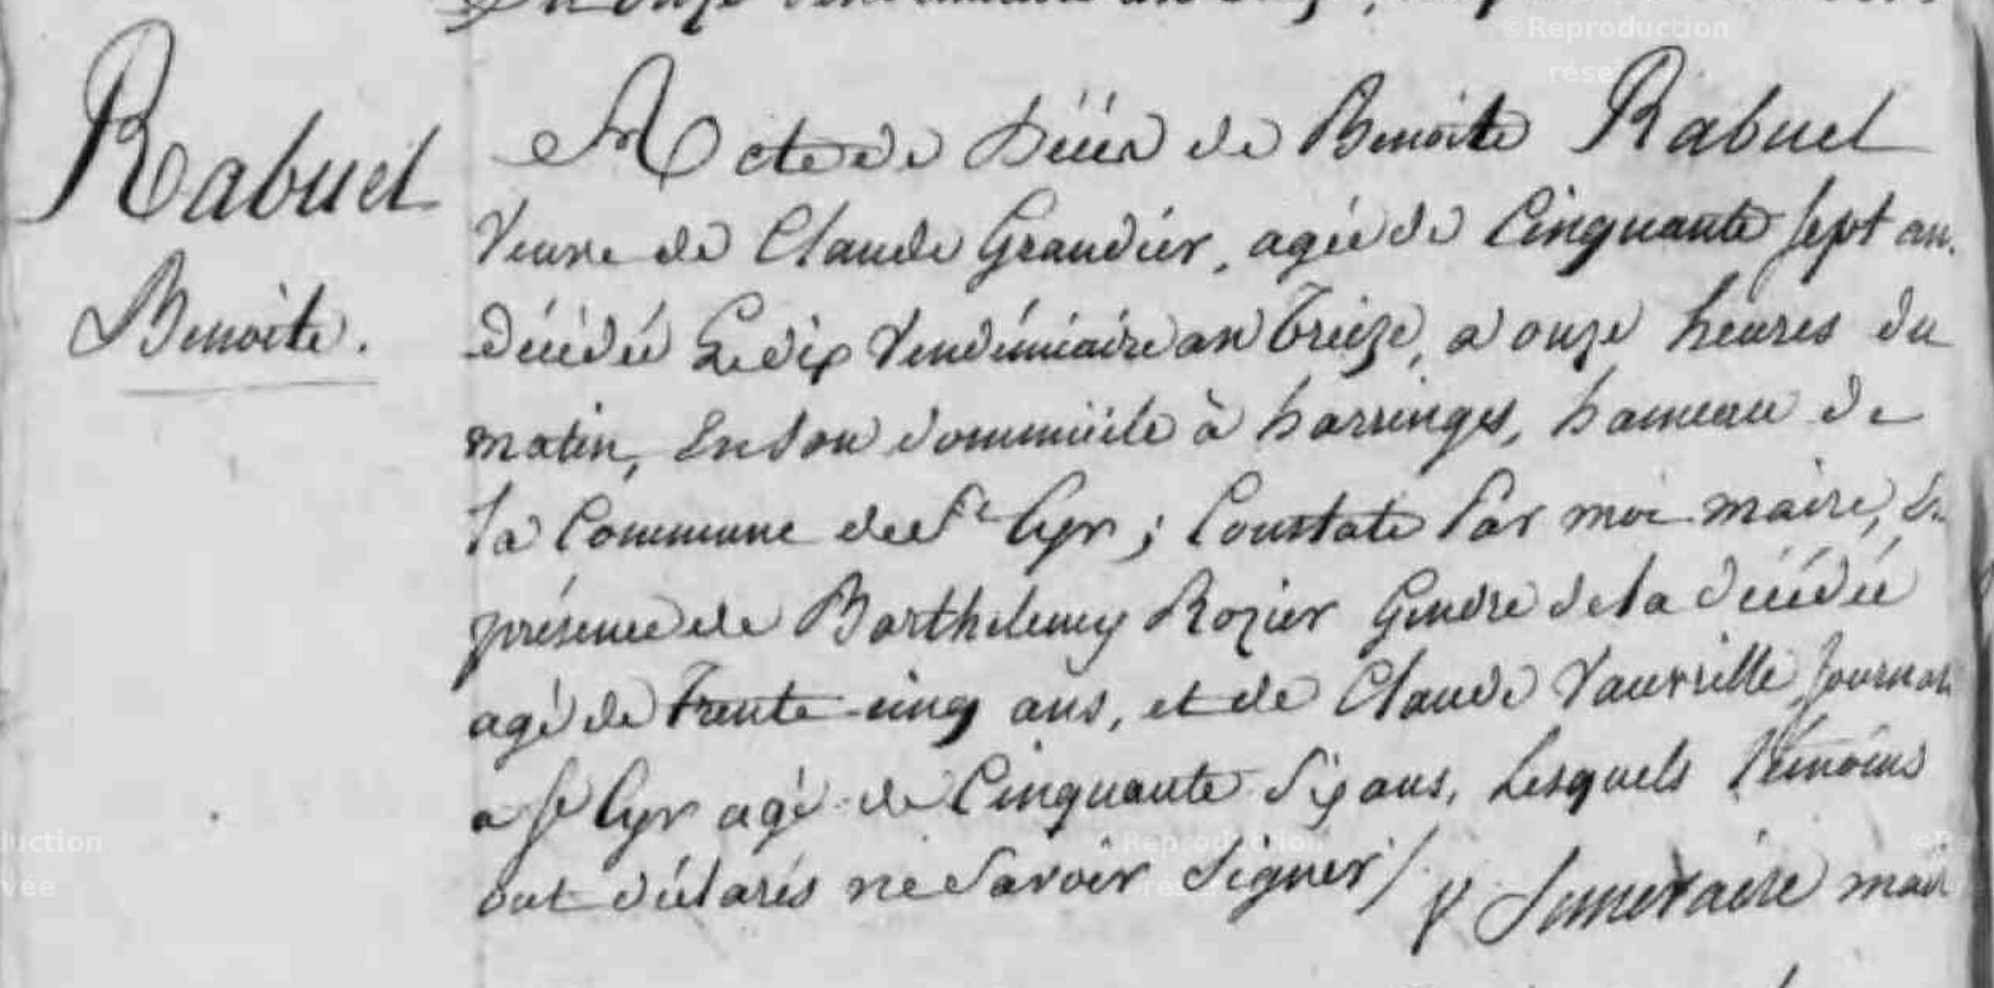 Du onze vendemiaire an treize,
Rabuel
Benoite.
Acte de Décès de Benoite Rabuel
Veuve de Claude Grandier, agée de Cinquante Sept an.
Décédée Le dix Vendémiaire an treize, a onze heures du
matin, En Son dommicile à harringes, hameau de
la Commune de St Cyr ; Constate Par moi maire, En
présence de Barthelemy Rozier Gendre de la décédée
agé de trente-cinq ans, et de Claude Journal
a St Cyr agé de Cinquante Six ans, Lesquels témoins
ont déclarés ne Savoir Signer /. maire
©Reproduction
©Reproduction